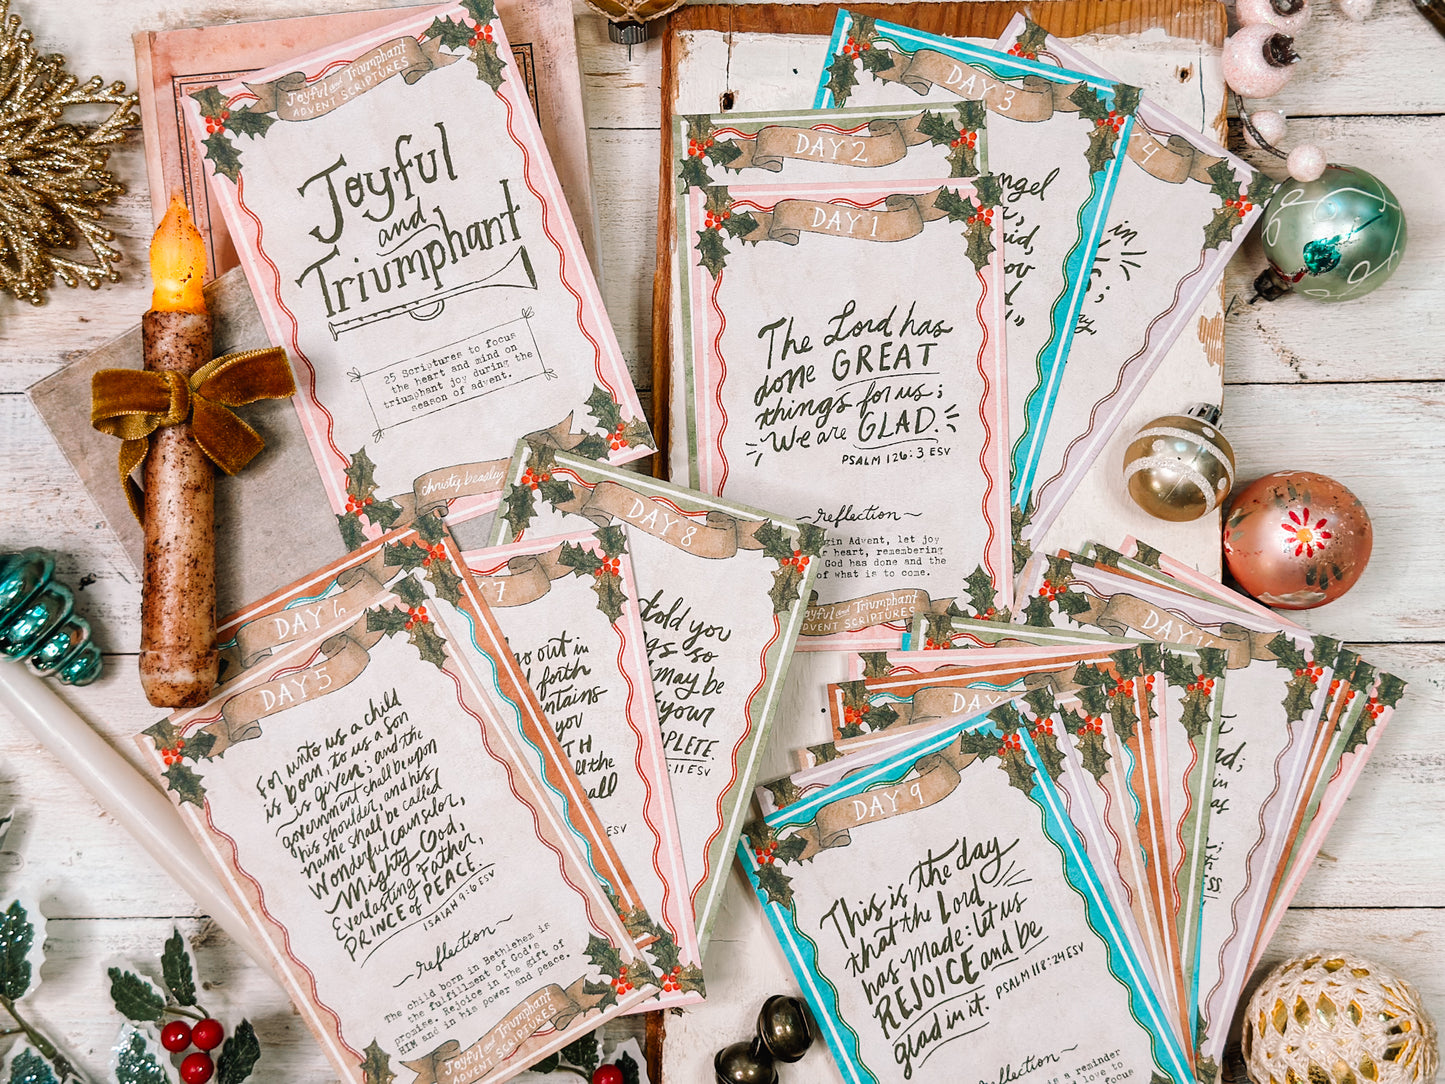 Joyful and Triumphant
ADVENT SCRIPTURES
Joyful
and
Triumphant
25 Scriptures to focus
the heart and mind on
triumphant joy during the
season of advent.
christy beasley
DAY 3
DAY 2
4
DAY 1
in
The Lord has
done GREAT
things for us;
We are GLAD.
PSALM 126:3 ESV
reflection
Advent, let joy
heart, remembering
God has done and the
of what is to come.
Joyful and Triumphant
ADVENT SCRIPTURES
DAY 8
told you
so
may be
your
:11 ESV
7
go out in
forth
you
the
ESV
DAY 6
DAY 5
For unto us a child
is born, to us a Son
is given; and the
government shall be upon
his shoulder, and his
name shall be called
Wonderful counselor,
Mighty God,
Everlasting Father,
PRINCE of PEACE.
ISAIAH 9:6 ESV
reflection
The child born in Bethlehem is
the fulfillment of God's
promise. Rejoice in the gift of
HIM and in his power and peace.
Joyful and Triumphant
ADVENT SCRIPTURES
DAY 9
This is the day
that the Lord
has made: let us
REJOICE and be
glad in it.
PSALM 118:24 ESV
reflection
is a reminder
love to
focus